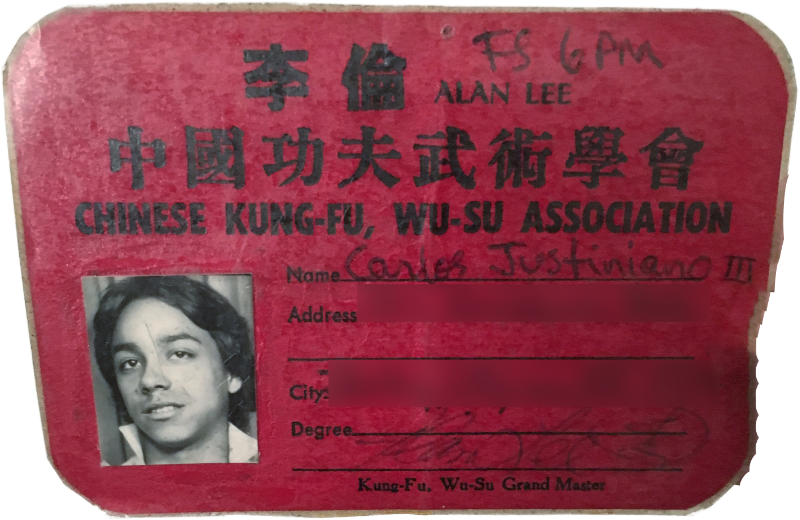 FS 6 PM
李倫 ALAN LEE
中國功夫武術學會
CHINESE KUNG-FU, WU-SU ASSOCIATION
Name Carlos Justiniano III
Address
City
Degree
Kung-Fu, Wu-Su Grand Master